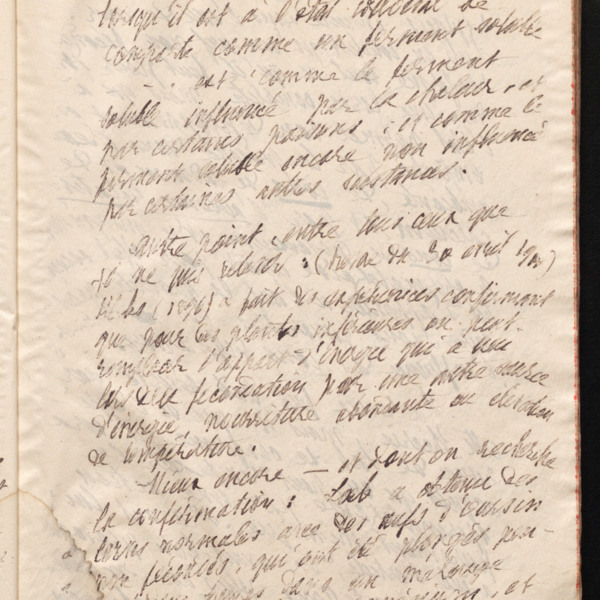 lorsqu'il est à l'état de
comporte comme un ferment soluble
est comme le ferment
soluble influencé par la chaleur, et
par certains poisons ; et comme le
ferment soluble encore non influencé
par certaines autres substances.
Autre point, entre tous ceux que
je ne puis relever : (revue du 30 avril
Klebs (1896) a fait des expériences confirmant
que pour les plantes inférieures on peut
remplacer l'apport d'énergie qui a eu
lieu de la fécondation par une autre source
d'énergie, nourriture abondante ou élévation
de température.
Mieux encore — et dont on recherche
la confirmation : Loeb a obtenu des
larves normales avec des œufs d'oursin
non fécondés, qui ont été plongés
dans un mélange
et